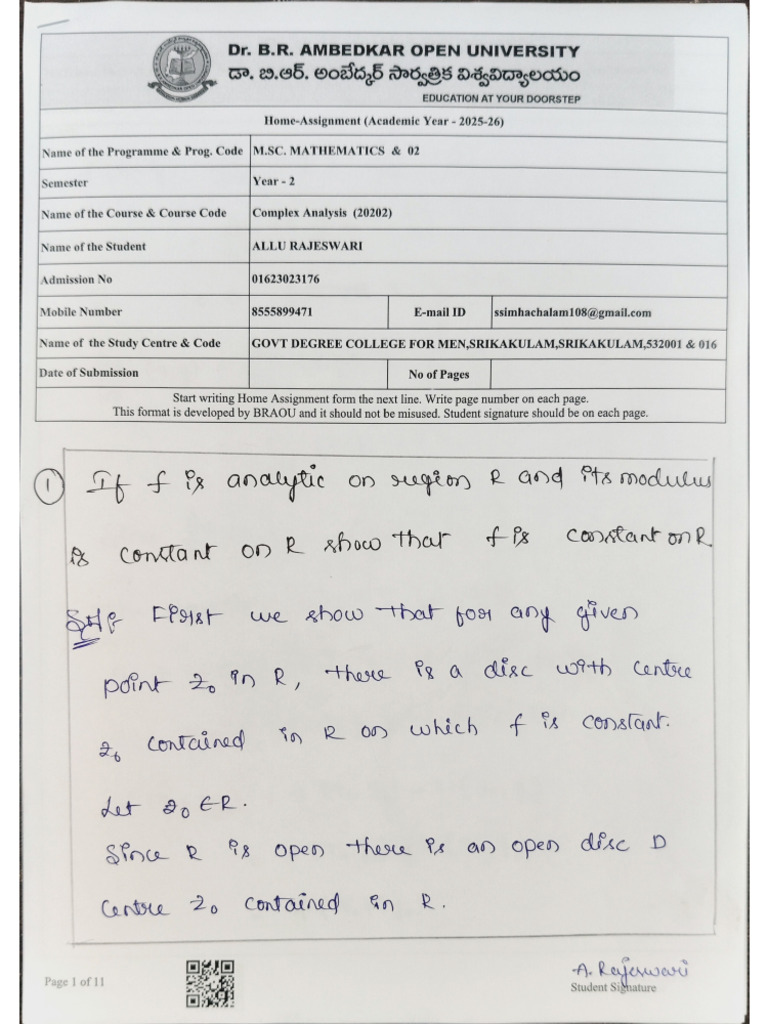 Dr. B.R. AMBEDKAR OPEN UNIVERSITY
డా. బి.ఆర్. అంబేద్కర్ సార్వత్రిక విశ్వవిద్యాలయం
EDUCATION AT YOUR DOORSTEP
Home-Assignment (Academic Year - 2025-26)
Name of the Programme & Prog. Code M.SC. MATHEMATICS & 02
Semester Year - 2
Name of the Course & Course Code Complex Analysis (20202)
Name of the Student ALLU RAJESWARI
Admission No 01623023176
Mobile Number 8555899471 E-mail ID ssimhachalam108@gmail.com
Name of the Study Centre & Code GOVT DEGREE COLLEGE FOR MEN,SRIKAKULAM,SRIKAKULAM,532001 & 016
Date of Submission No of Pages
Start writing Home Assignment form the next line. Write page number on each page.
This format is developed by BRAOU and it should not be misused. Student signature should be on each page.
① If f is analytic on region R and its modulus
is constant on R show that f is constant on R
First we show that for any given
point z₀ in R, there is a disc with centre
z₀ contained in R on which f is constant.
Let z₀ ∈ R.
Since R is open there is an open disc D
Centre z₀ contained in R.
A. Rajeswari
Page 1 of 11 Student Signature